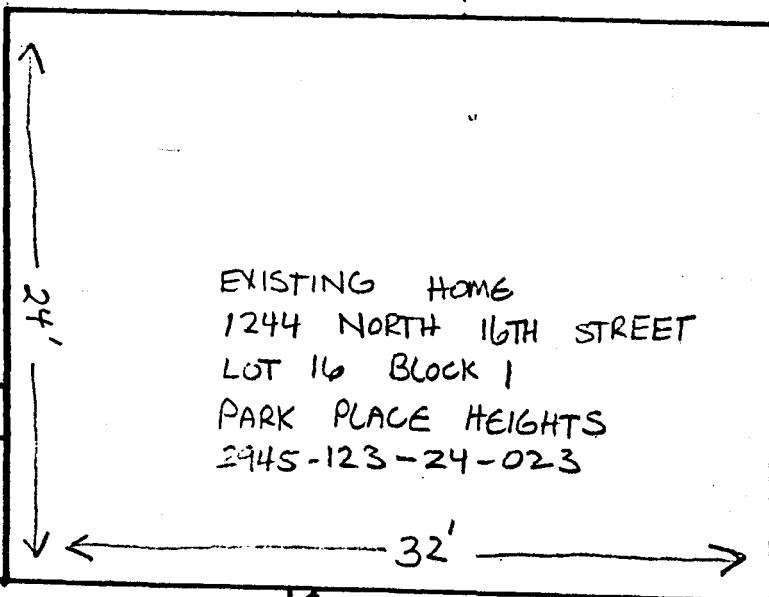 24'
EXISTING HOME
1244 NORTH 16TH STREET
LOT 16 BLOCK 1
PARK PLACE HEIGHTS
2945-123-24-023
32'